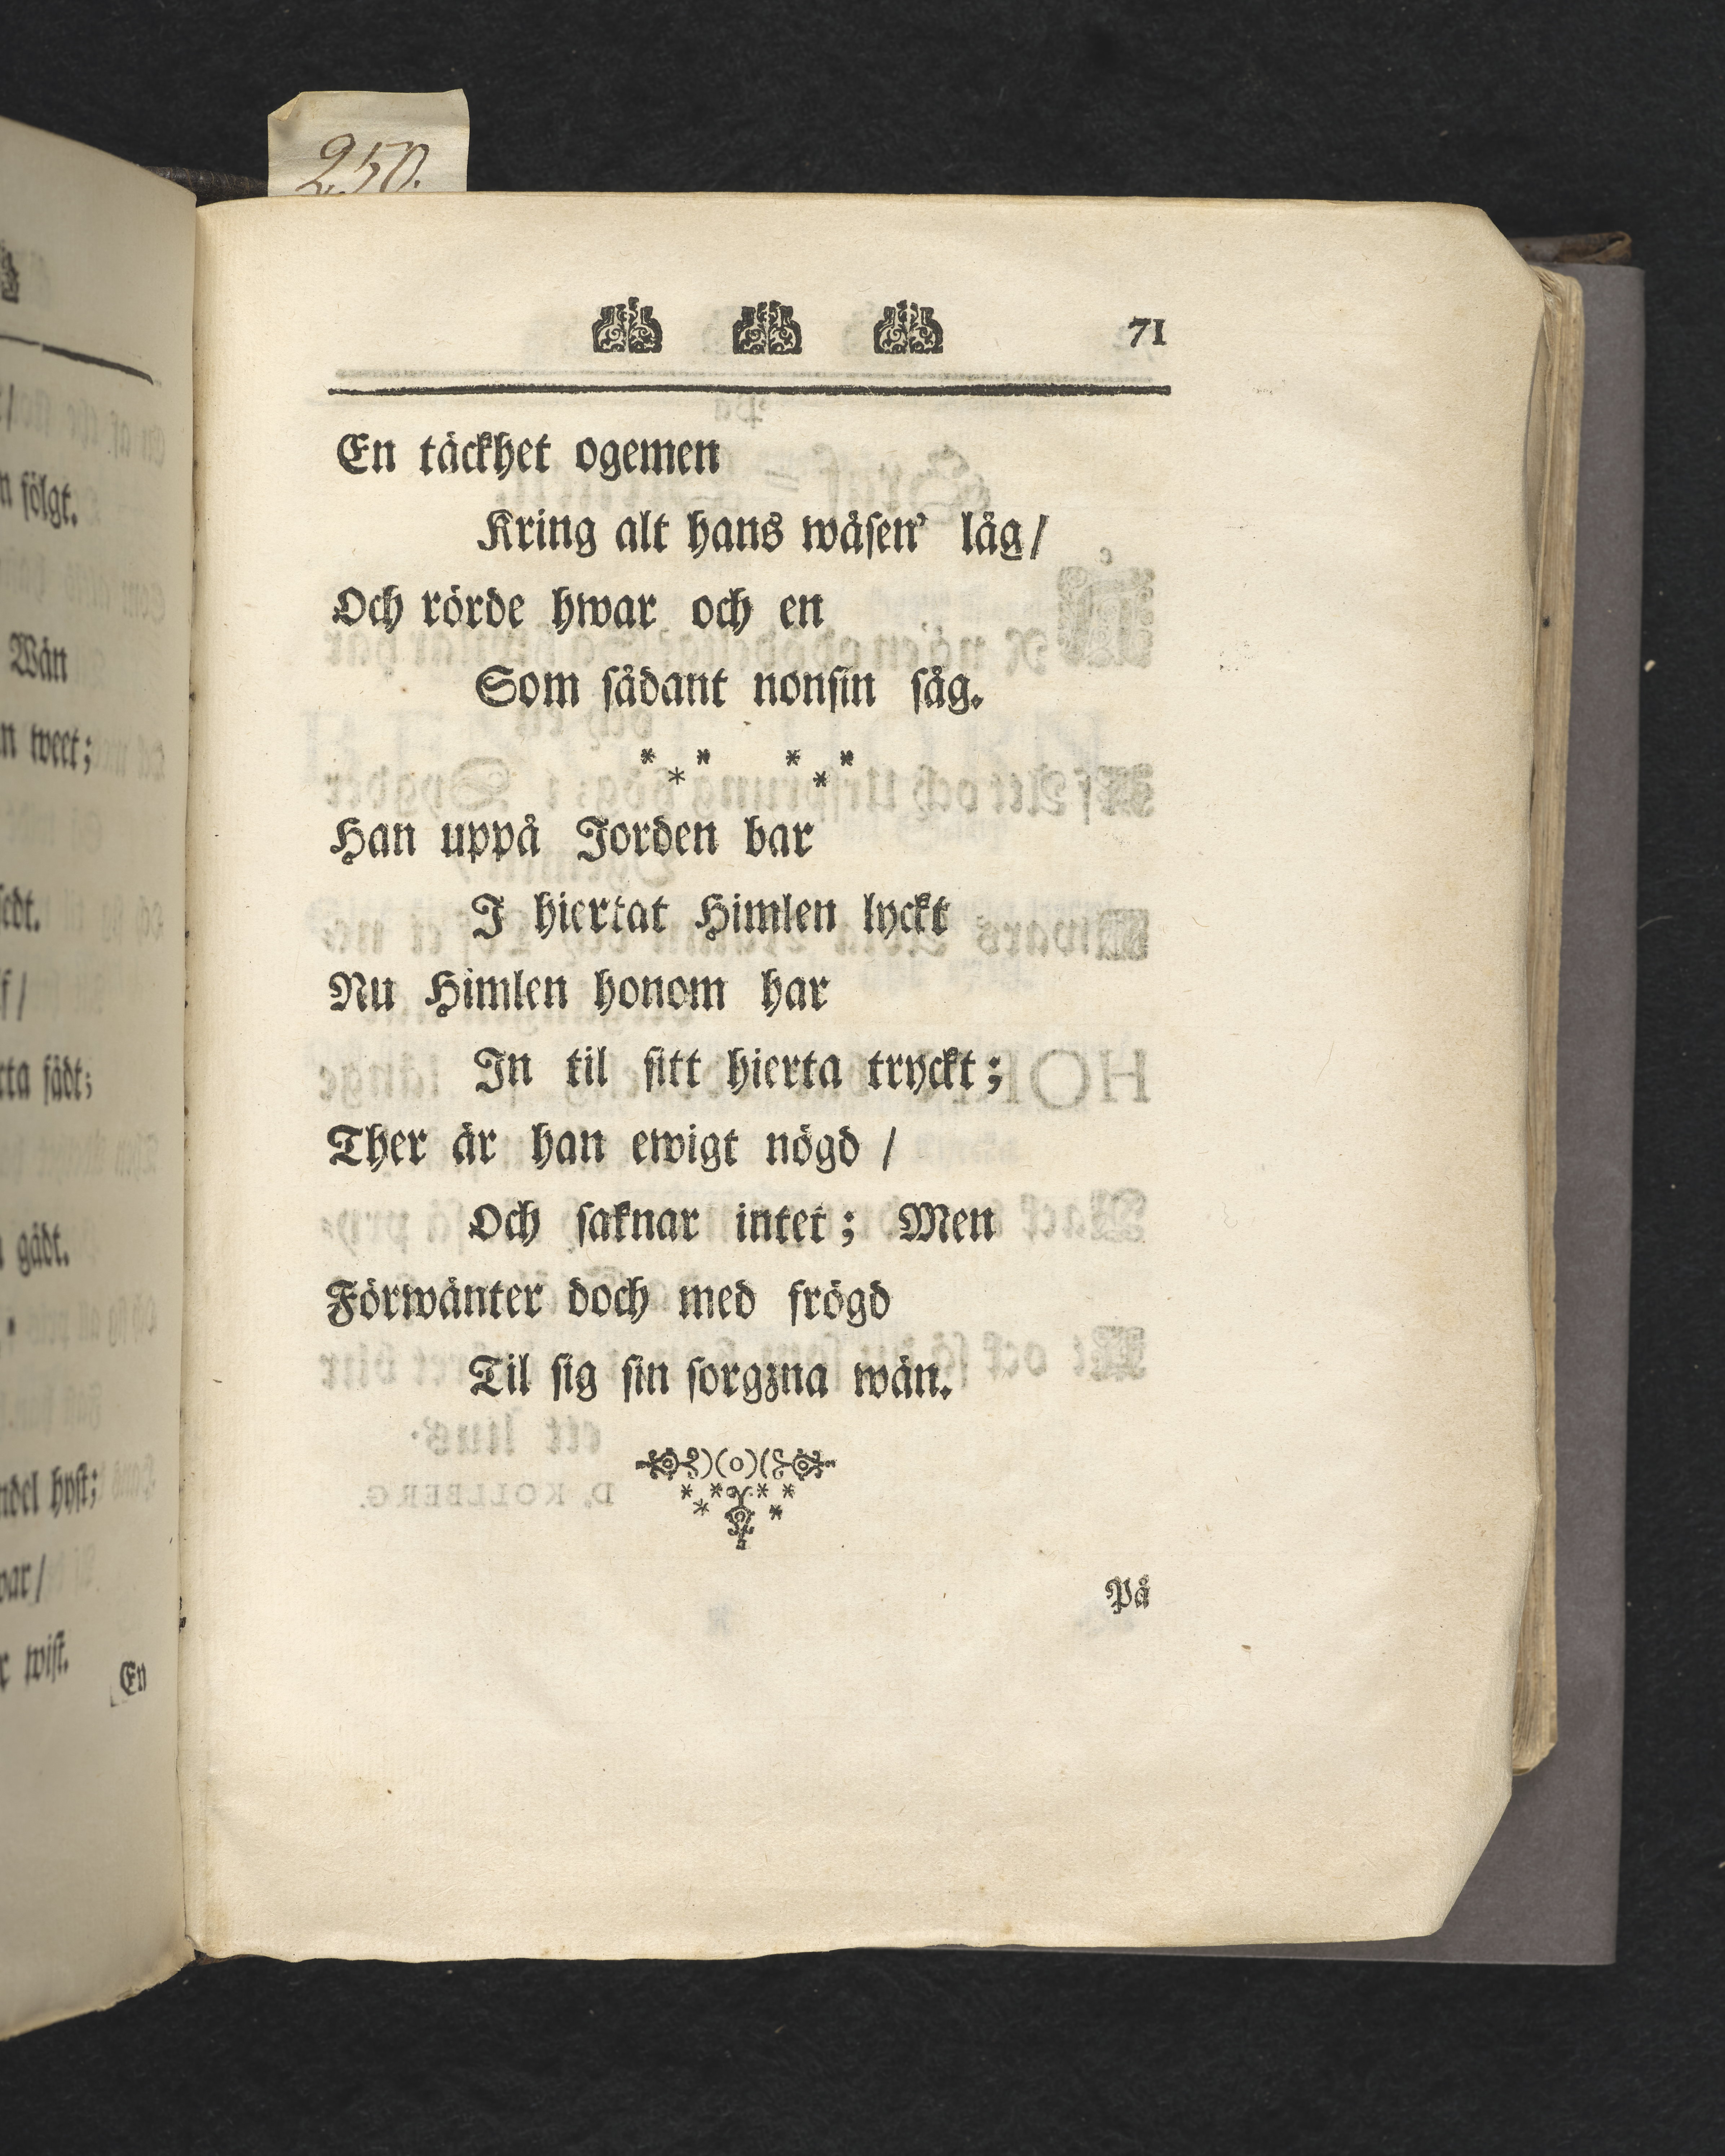 250.
71
En täckhet ogemen
Kring alt hans wäsen' låg/
Och rörde hwar och en
Som sådant nonsin såg.
* * * * * *
Han uppå Jorden bar
I hiertat Himlen lyckt
Nu Himlen honom har
In til sitt hierta tryckt;
Ther är han ewigt nögd /
Och saknar intet; Men
Förwänter doch med frögd
Til sig sin sorgzna wän.
)(o)(
På
fölgt.
Wän
tweet;
gådt.
hyst;
wist.
En